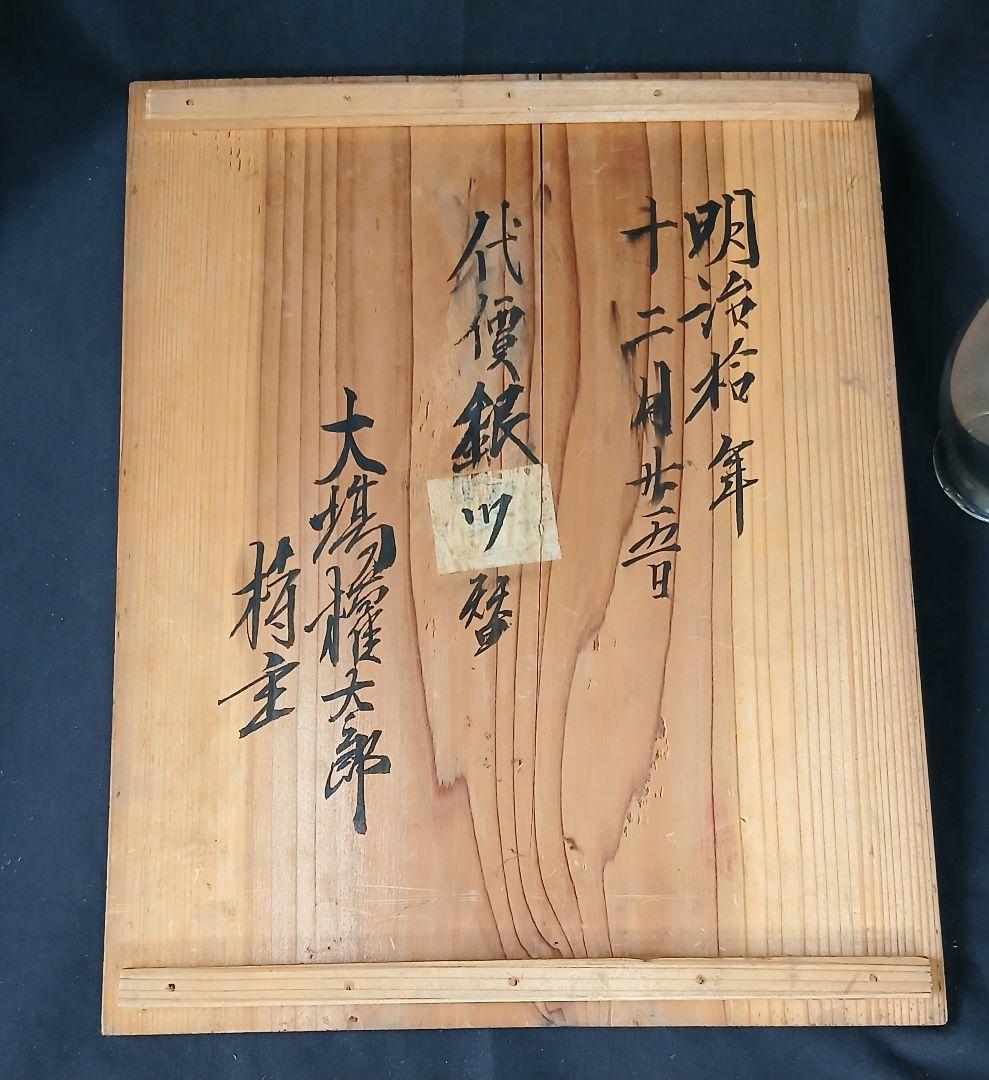 明治拾年
十二月廿五日
代價銀
大嶋權太郎
持主